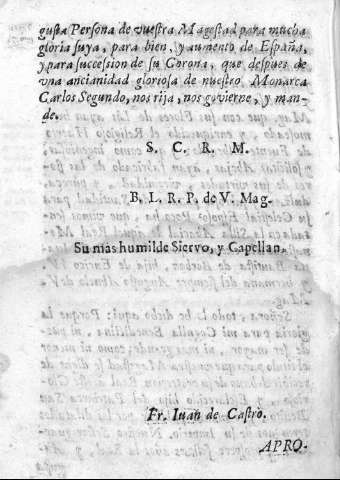 gusta Persona de vuestra Magestad para mucha
gloria suya, para bien, y aumento de España,
y para succession de su Corona, que despues de
vna ancianidad gloriosa de nuestro Monarca
Carlos Segundo, nos rija, nos govierne, y man-
de.
S. C. R. M.
B. L. R. P. de V. Mag.
Su mas humilde Siervo, y Capellan.
Fr. Iuan de Castro.
APRO-